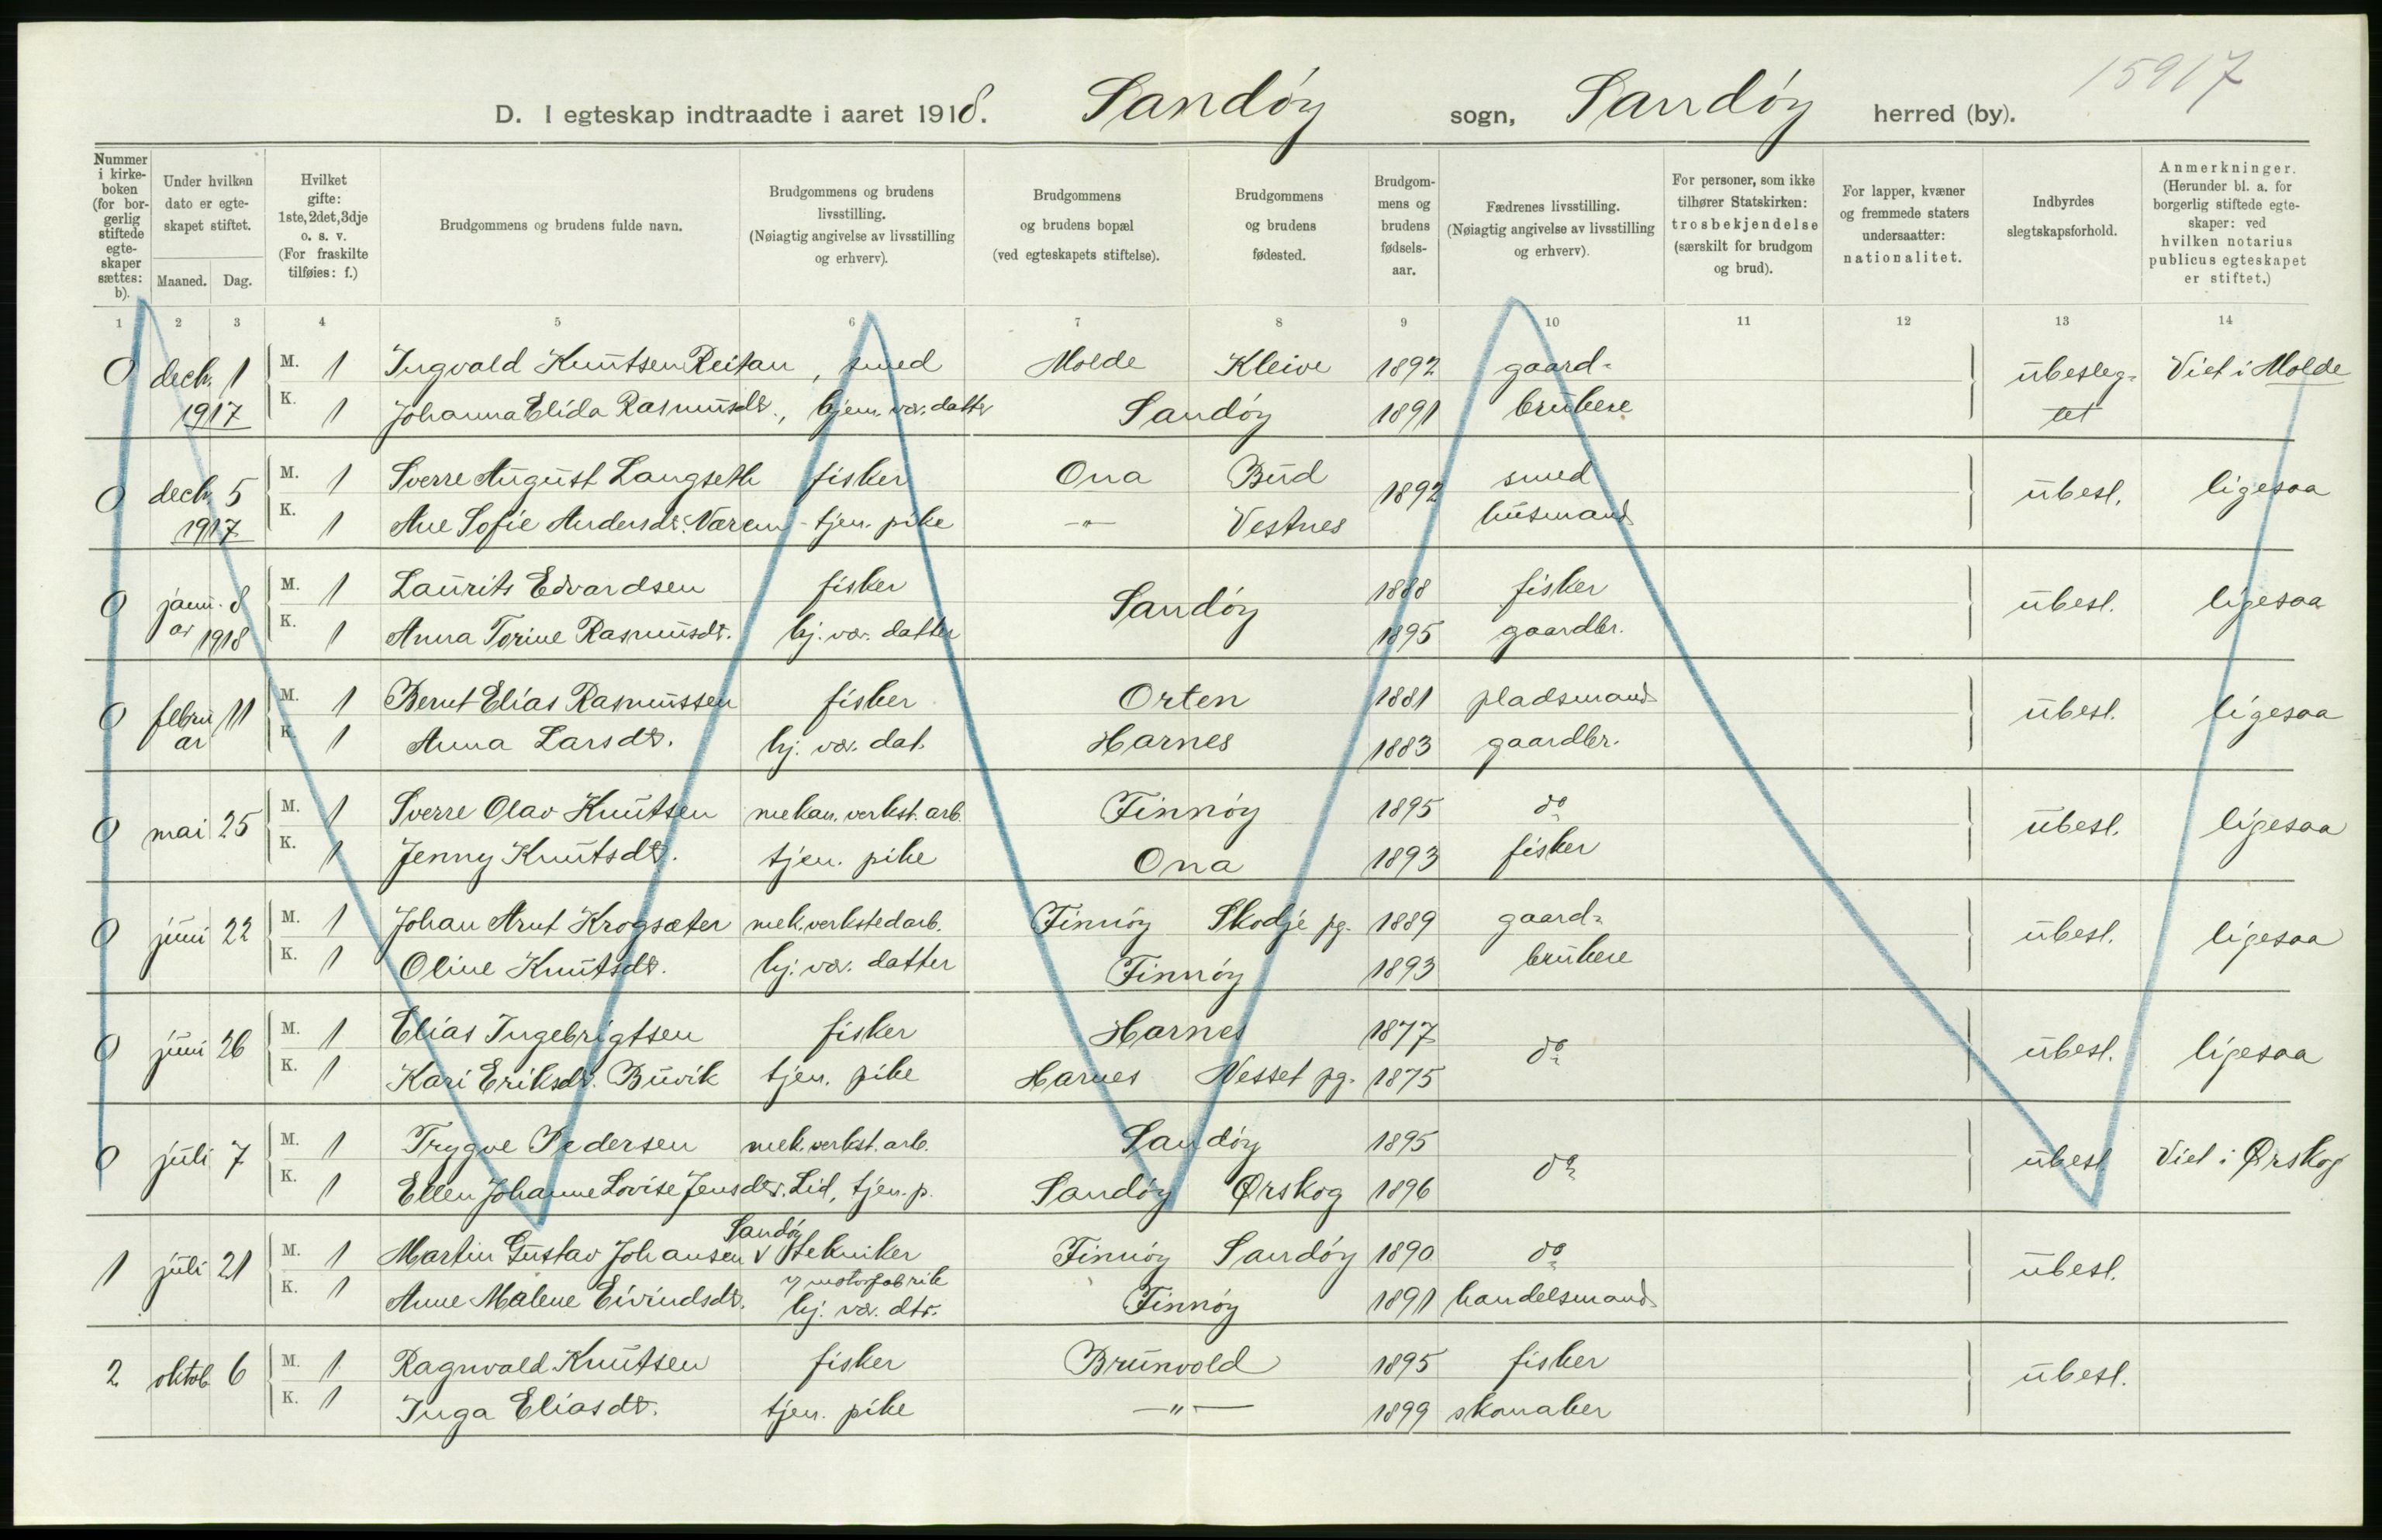 15917
D. I egteskap indtraadte i aaret 1918. Sandöy sogn, Sandöy herred (by).
Nummer i kirkeboken (for borgerlig stiftede egteskaper sættes: b).
Under hvilken dato er egteskapet stiftet.
Maaned. Dag.
Hvilket gifte: 1ste, 2det, 3dje o. s. v. (For fraskilte tilføies: f.)
Brudgommens og brudens fulde navn.
Brudgommens og brudens livsstilling. (Nøiagtig angivelse av livsstilling og erhverv).
Brudgommens og brudens bopæl (ved egteskapets stiftelse).
Brudgommens og brudens fødested.
Brudgommens og brudens fødselsaar.
Fædrenes livsstilling. (Nøiagtig angivelse av livsstilling og erhverv).
For personer, som ikke tilhører Statskirken: trosbekjendelse (særskilt for brudgom og brud).
For lapper, kvæner og fremmede staters undersaatter: nationalitet.
Indbyrdes slegtskapsforhold.
Anmerkninger. (Herunder bl. a. for borgerlig stiftede egteskaper: ved hvilken notarius publicus egteskapet er stiftet.)
1 2 3 4 5 6 7 8 9 10 11 12 13 14
0 decb. 1 M. 1 Ingvald Knutsen Reitan, smed Molde Kleive 1892 gaard- ubesleg- Viet i Molde
1917 K. 1 Johanna Elida Rasmusdt., hjem. vær. datter Sandöy 1891 brukere tet
0 decb. 5 M. 1 Sverre August Langseth fisker Ona Bud 1892 smed ubesl. ligesaa
1917 K. 1 Ane Sofie Andersdt. Varem - tjen. pike -"- Vestnes husmand
0 janu- 8 M. 1 Laurits Edvardsen fisker Sandöy 1888 fisker ubesl. ligesaa
ar 1918 K. 1 Anna Torine Rasmusdt. hj. vær. datter 1895 gaardbr.
0 febru 11 M. 1 Bernt Elias Rasmussen fisker Orten 1881 pladsmand ubesl. ligesaa
ar K. 1 Anna Larsdt. hj. vær. dat. Harnes 1883 gaardbr.
0 mai 25 M. 1 Sverre Olav Knutsen mekan. verkst. arb. Finnöy 1895 do ubesl. ligesaa
K. 1 Jenny Knutsdt. tjen. pike Ona 1893 fisker
0 juni 22 M. 1 Johan Arnt Krogsæter mek. verkstedarb. Finnöy Skodje pg. 1889 gaard- ubesl. ligesaa
K. 1 Oline Knutsdt. hj. vær. datter Finnöy 1893 brukere
0 juni 26 M. 1 Elias Ingebrigtsen fisker Harnes 1877 do ubesl. ligesaa
K. 1 Kari Eriksdt. Buvik tjen. pike Harnes Nesset pg. 1875
0 juli 7 M. 1 Trygve Pedersen mek. verkst. arb. Sandöy 1895 do ubesl. Viet i Ørskog
K. 1 Ellen Johanne Lovise Jensdtr. Lid, tjen. p. Sandöy Ørskog 1896
Sandöy
1 juli 21 M. 1 Martin Gustav Johansen v tekniker Finnöy Sandöy 1890 do ubesl.
motorfabrik
K. 1 Anne Malene Eivindsdt. hj. vær. dtr. Finnöy 1891 handelsmand
2 oktob 6 M. 1 Ragnvald Knutsen fisker Brunvold 1895 fisker ubesl.
K. 1 Inga Eliasdt. tjen. pike -"- 1899 skomaker